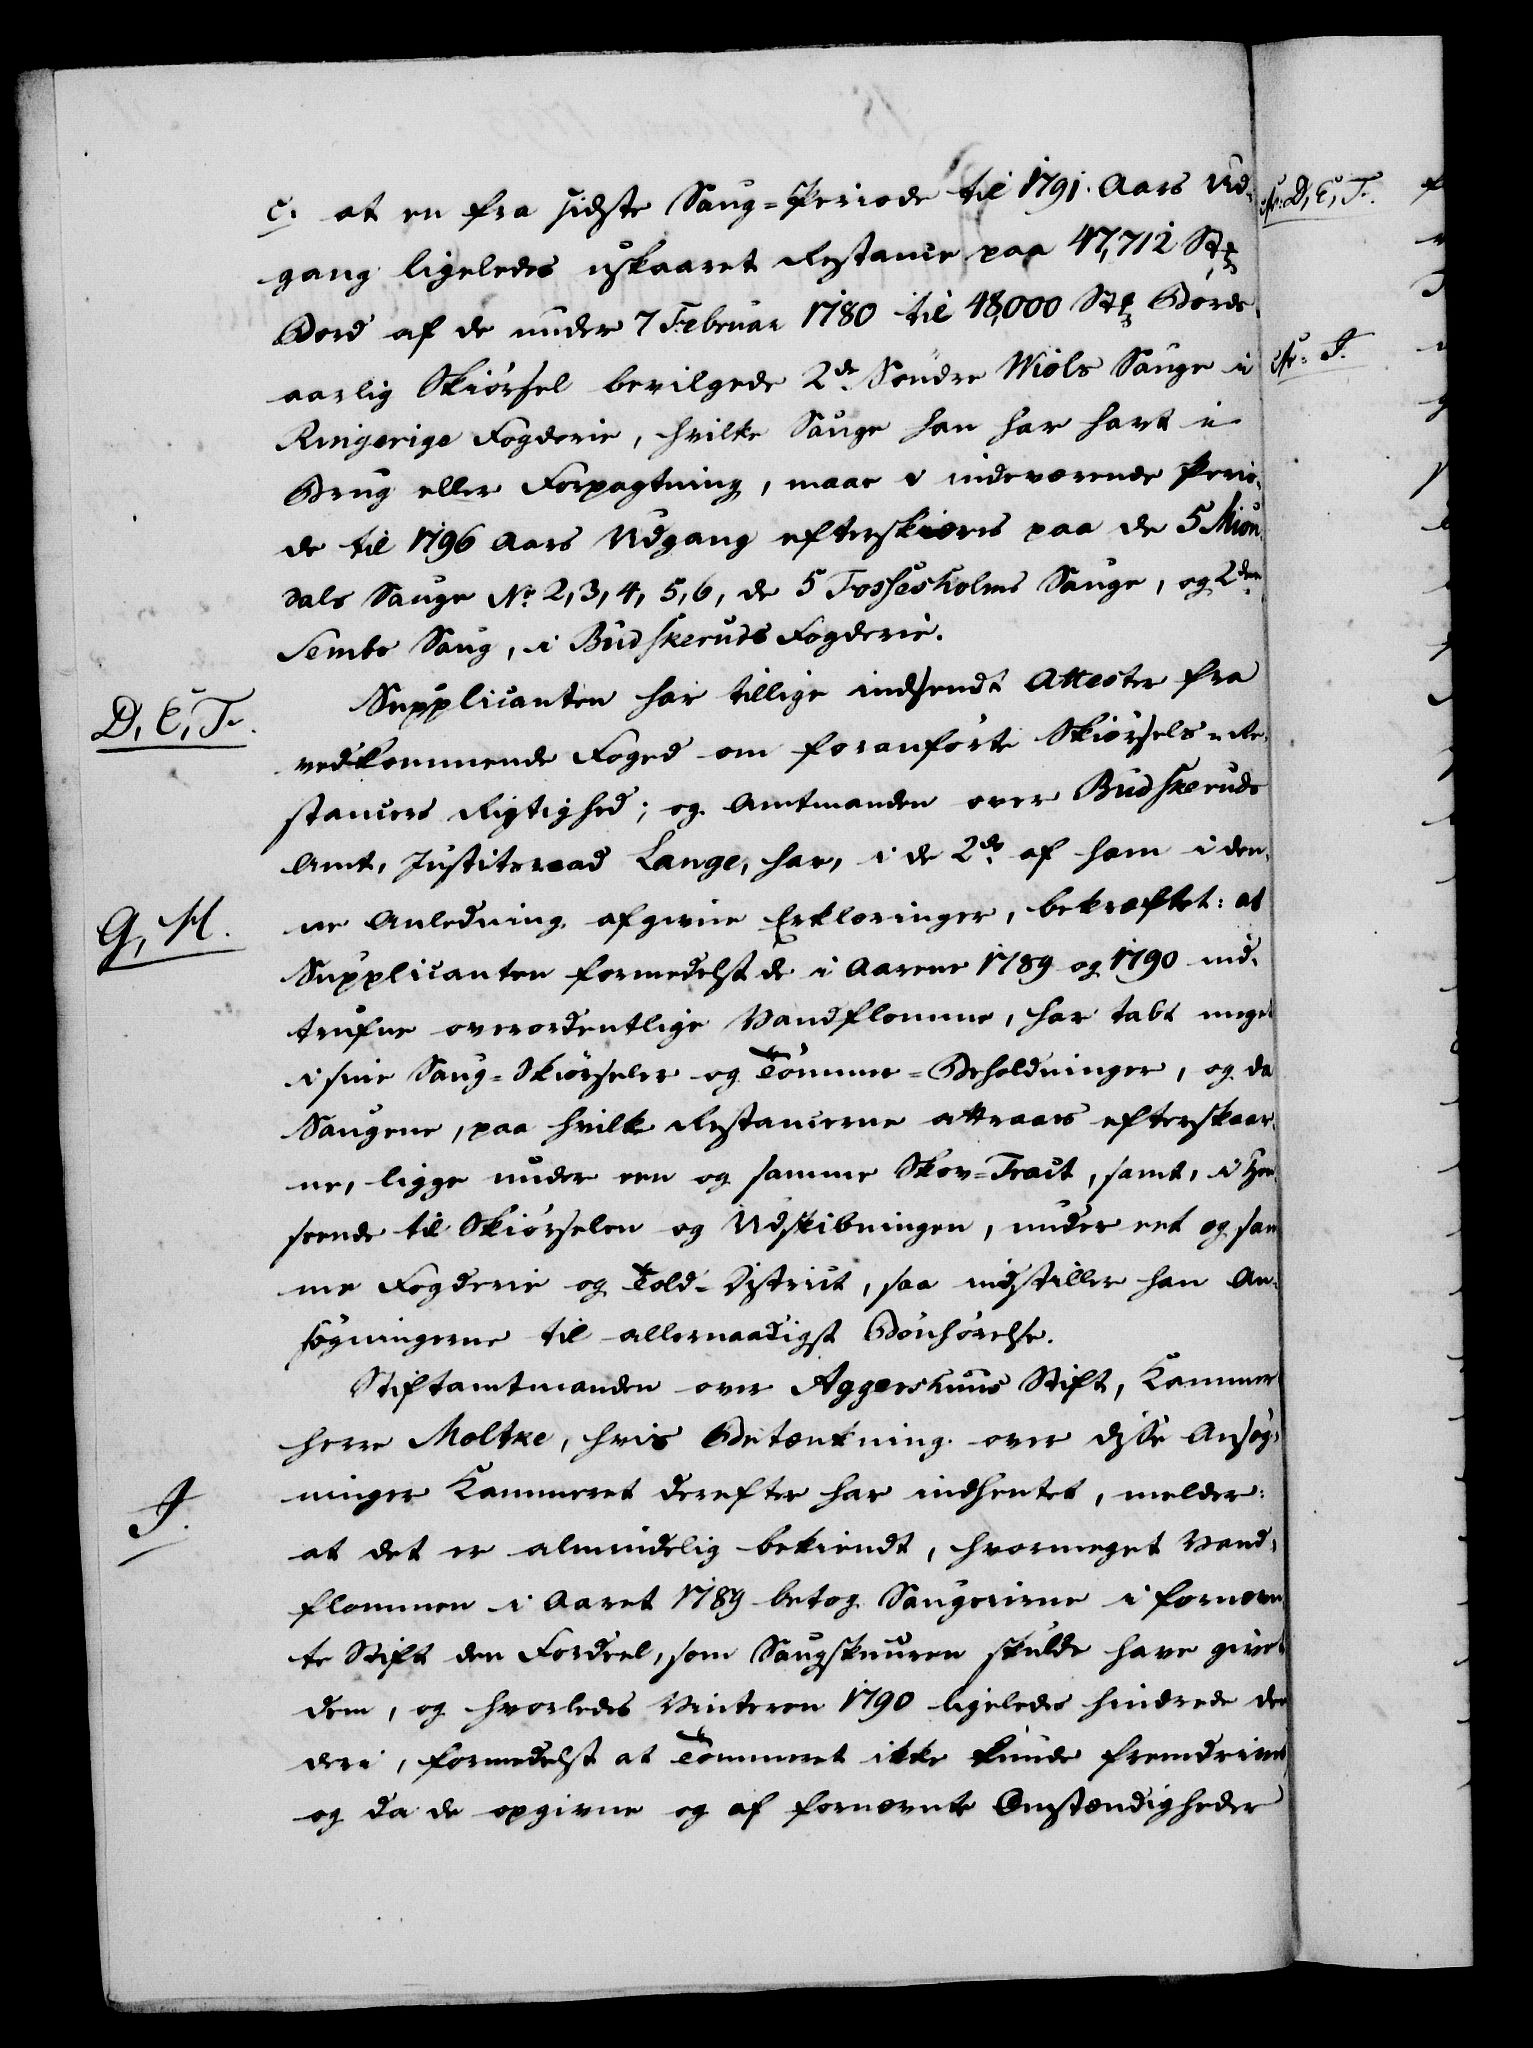 c. at en fra sidste Saug-Periode til 1791. Aars Ud-
gang ligeledes uskaaret Restance paa 47,712 Stk
Bord af de under 7 Februar 1780 til 48,000 Stk Bords
aarlig Skiørsel bevilgede 2de Søndre Wiøls Sauge i
Ringerige Fogderie, hvilke Sauge han har havt i
Brug eller Forpagtning, maae i indeværende Perio-
de til 1796 Aars Udgang efterskiæres paa de 5 Miøn-
dals Sauge No 2, 3, 4, 5, 6, de 5 Fossesholms Sauge, og 2den
Sembs Saug, i Budskeruds Fogderie.
D, E, F.
Supplicanten har tillige indsendt Attester fra
vedkommende Foged om foranførte Skiørsels-Re-
stancers Rigtighed; og Amtmanden over Budskeruds
Amt, Justitsraad Lange, har, i de 2de af ham i den-
G, H.
ne Anledning afgivne Erklæringer, bekræftet: at
Supplicanten formedelst de i Aarene 1789 og 1790 ind-
trufne overordentlige Vandflomme, har tabt meget
i sine Saug-Skiørseler og Tømmer-Beholdninger, og da
Saugene, paa hvilke Restancerne attraaes efterskaar-
ne, ligge under een og samme Skov-Tract, samt, i Hen-
seende til Skiørselen og Udskibningen, under eet og sam
me Fogderie og Told-District, saa indstiller han An-
søgningerne til allernaadigst Bønhørelse.
Stiftamtmanden over Aggershuus Stift, Kammer
herre Moltke, hvis Betænkning over disse Ansøg-
I.
ninger Kammeret derefter har indhentet, melder:
at det er almindelig bekiendt, hvormeget Vand-
flommen i Aaret 1789 betog Saugeierne i fornævn
te Stift den Fordeel, som Saugskuuren skulde have givet
dem, og hvorledes Vinteren 1790 ligeledes hindrede dem
deri, formedelst at Tømmeret ikke kunde fremdrives,
og da de opgivne og af fornævnte Omstændigheder
D, E, F.
I.